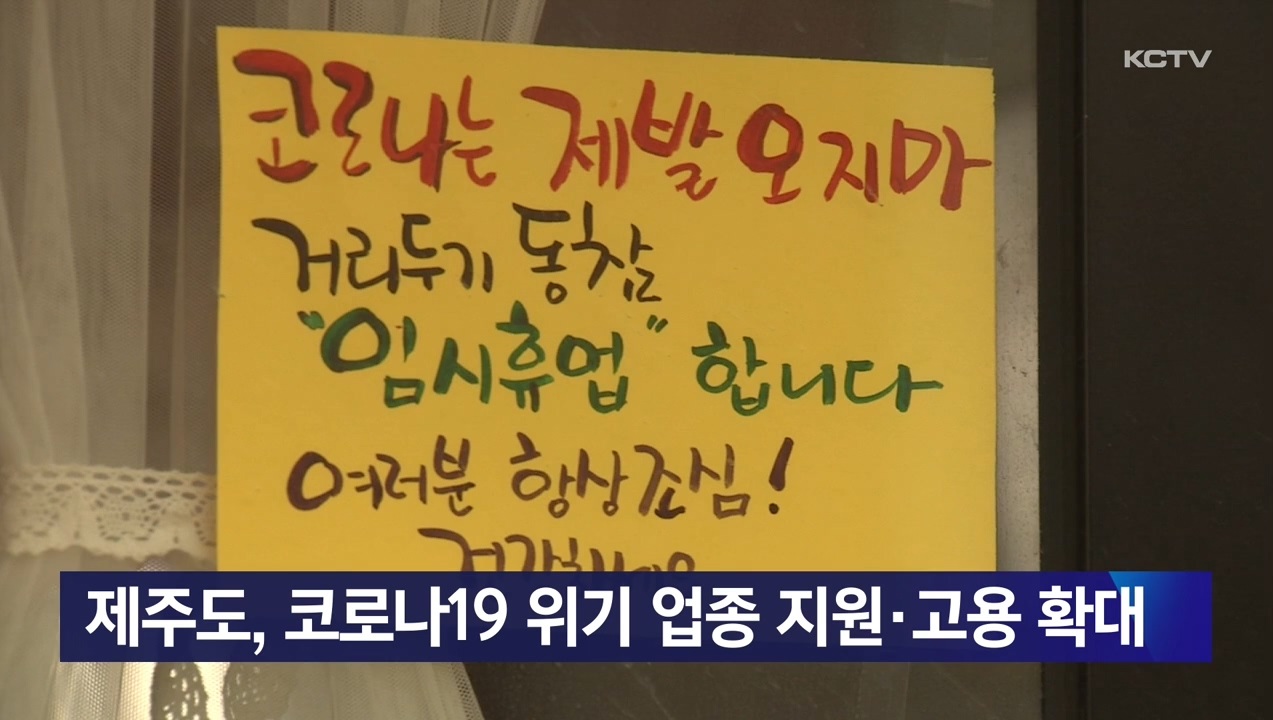 KCTV
코로나는 제발 오지마
거리두기 동참
"임시휴업" 합니다
여러분 항상조심!
제주도, 코로나19 위기 업종 지원·고용 확대